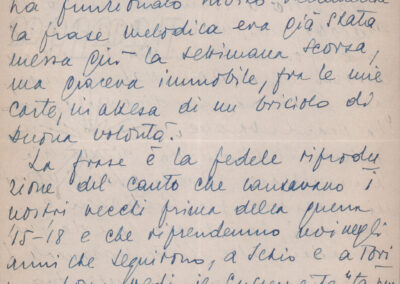 ha funzionato
la frase melodica era già stata
messa giù la settimana scorsa,
ma giaceva immobile, fra le mie
carte, in attesa di un briciolo di
buona volontà.
La frase è la fedele riprodu
zione del canto che cantavano i
nostri vecchi prima della guerra
'15-18 e che riprendemmo noi negli
anni che seguirono, a Schio e a Torri